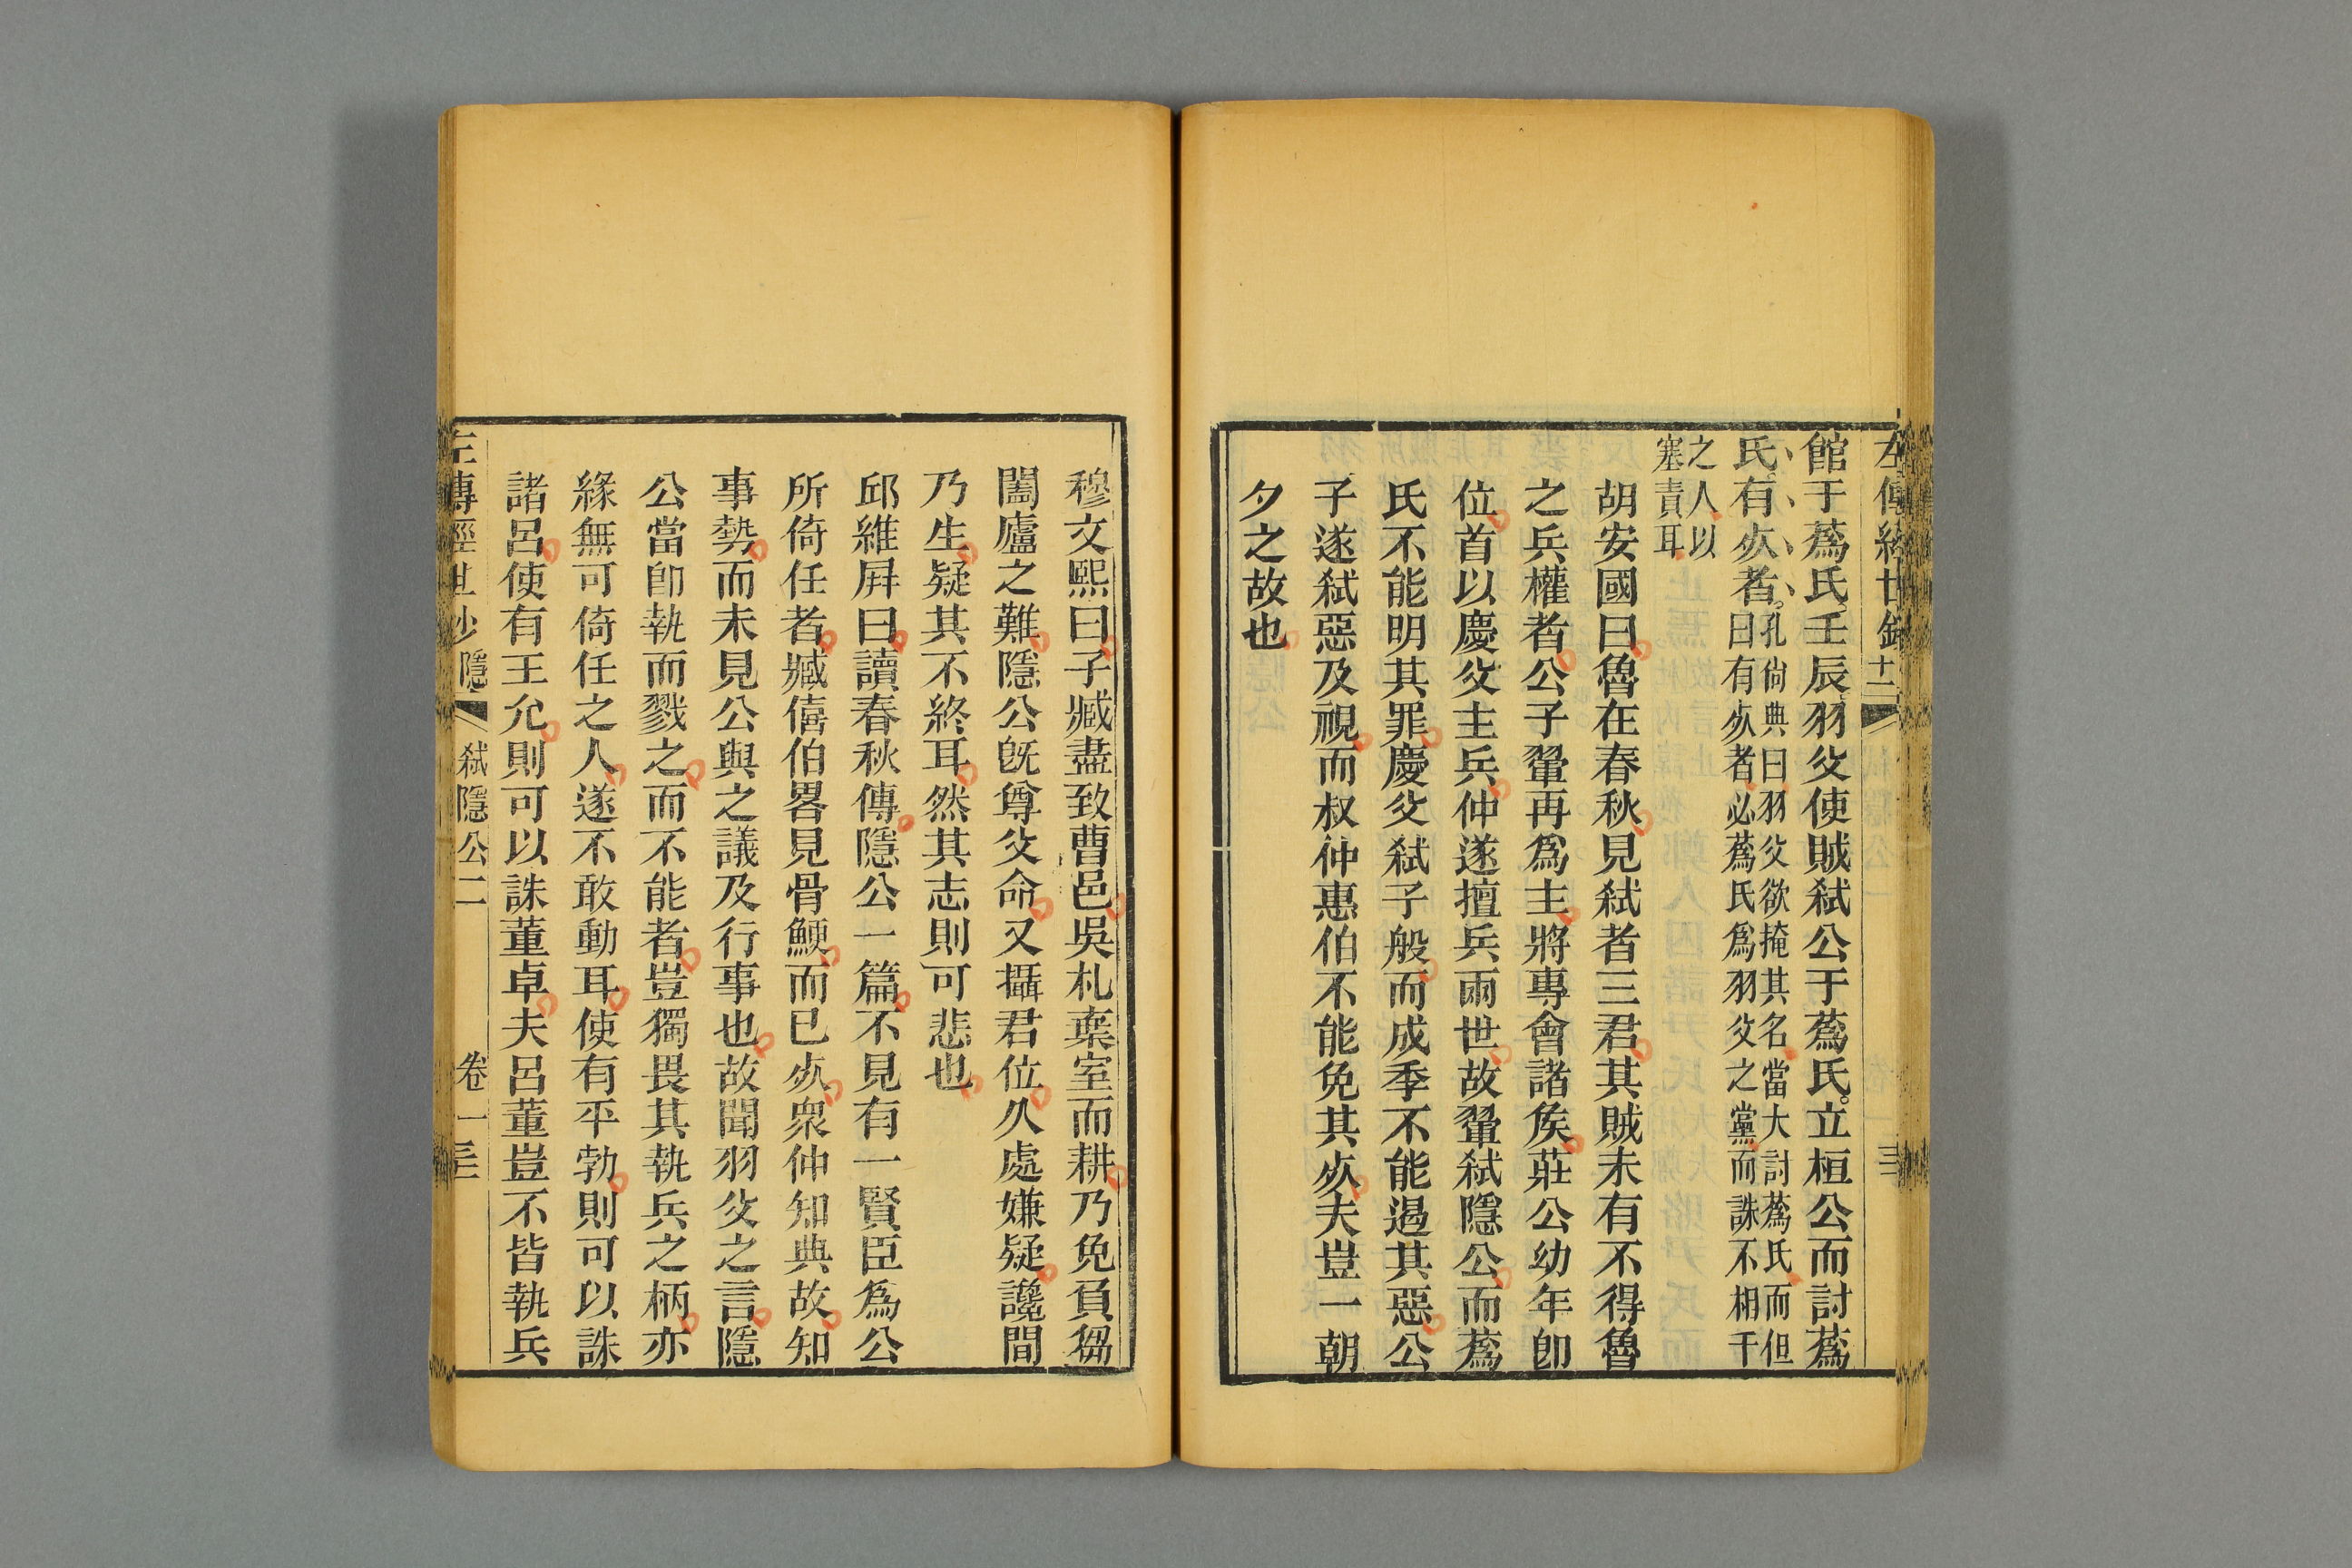 館于蔿氏壬辰羽父使賊弑公于蔿氏立桓公而討蔿
氏有㱙者。孔尙典曰羽父欲掩其名當大討蔿氏而但
曰有㱙者必蔿氏爲羽父之黨而誅不相干
之人以
塞責耳
胡安國曰魯在春秋見弑者三君其賊未有不得魯
之兵權者公子翬再爲主將專會諸矦莊公幼年卽
位首以慶父主兵仲遂擅兵兩世故翬弑隱公而蔿
氏不能明其罪慶父弑子般而成季不能遏其惡公
子遂弑惡及視而叔仲惠伯不能免其㱙夫豈一朝
夕之故也
穆文熙曰子臧盡致曹邑吳札棄室而耕乃免負芻
闔廬之難隱公旣尊父命又攝君位久處嫌疑讒間
乃生疑其不終耳然其志則可悲也
邱維屛曰讀春秋傳隱公一篇不見有一賢臣爲公
所倚任者臧僖伯畧見骨鯁而已㱙衆仲知典故知
事勢而未見公與之議及行事也故聞羽父之言隱
公當卽執而戮之而不能者豈獨畏其執兵之柄亦
緣無可倚任之人遂不敢動耳使有平勃則可以誅
諸呂使有王允則可以誅董卓夫呂董豈不皆執兵
左傳經世鈔 隱 弑隱公二 卷一